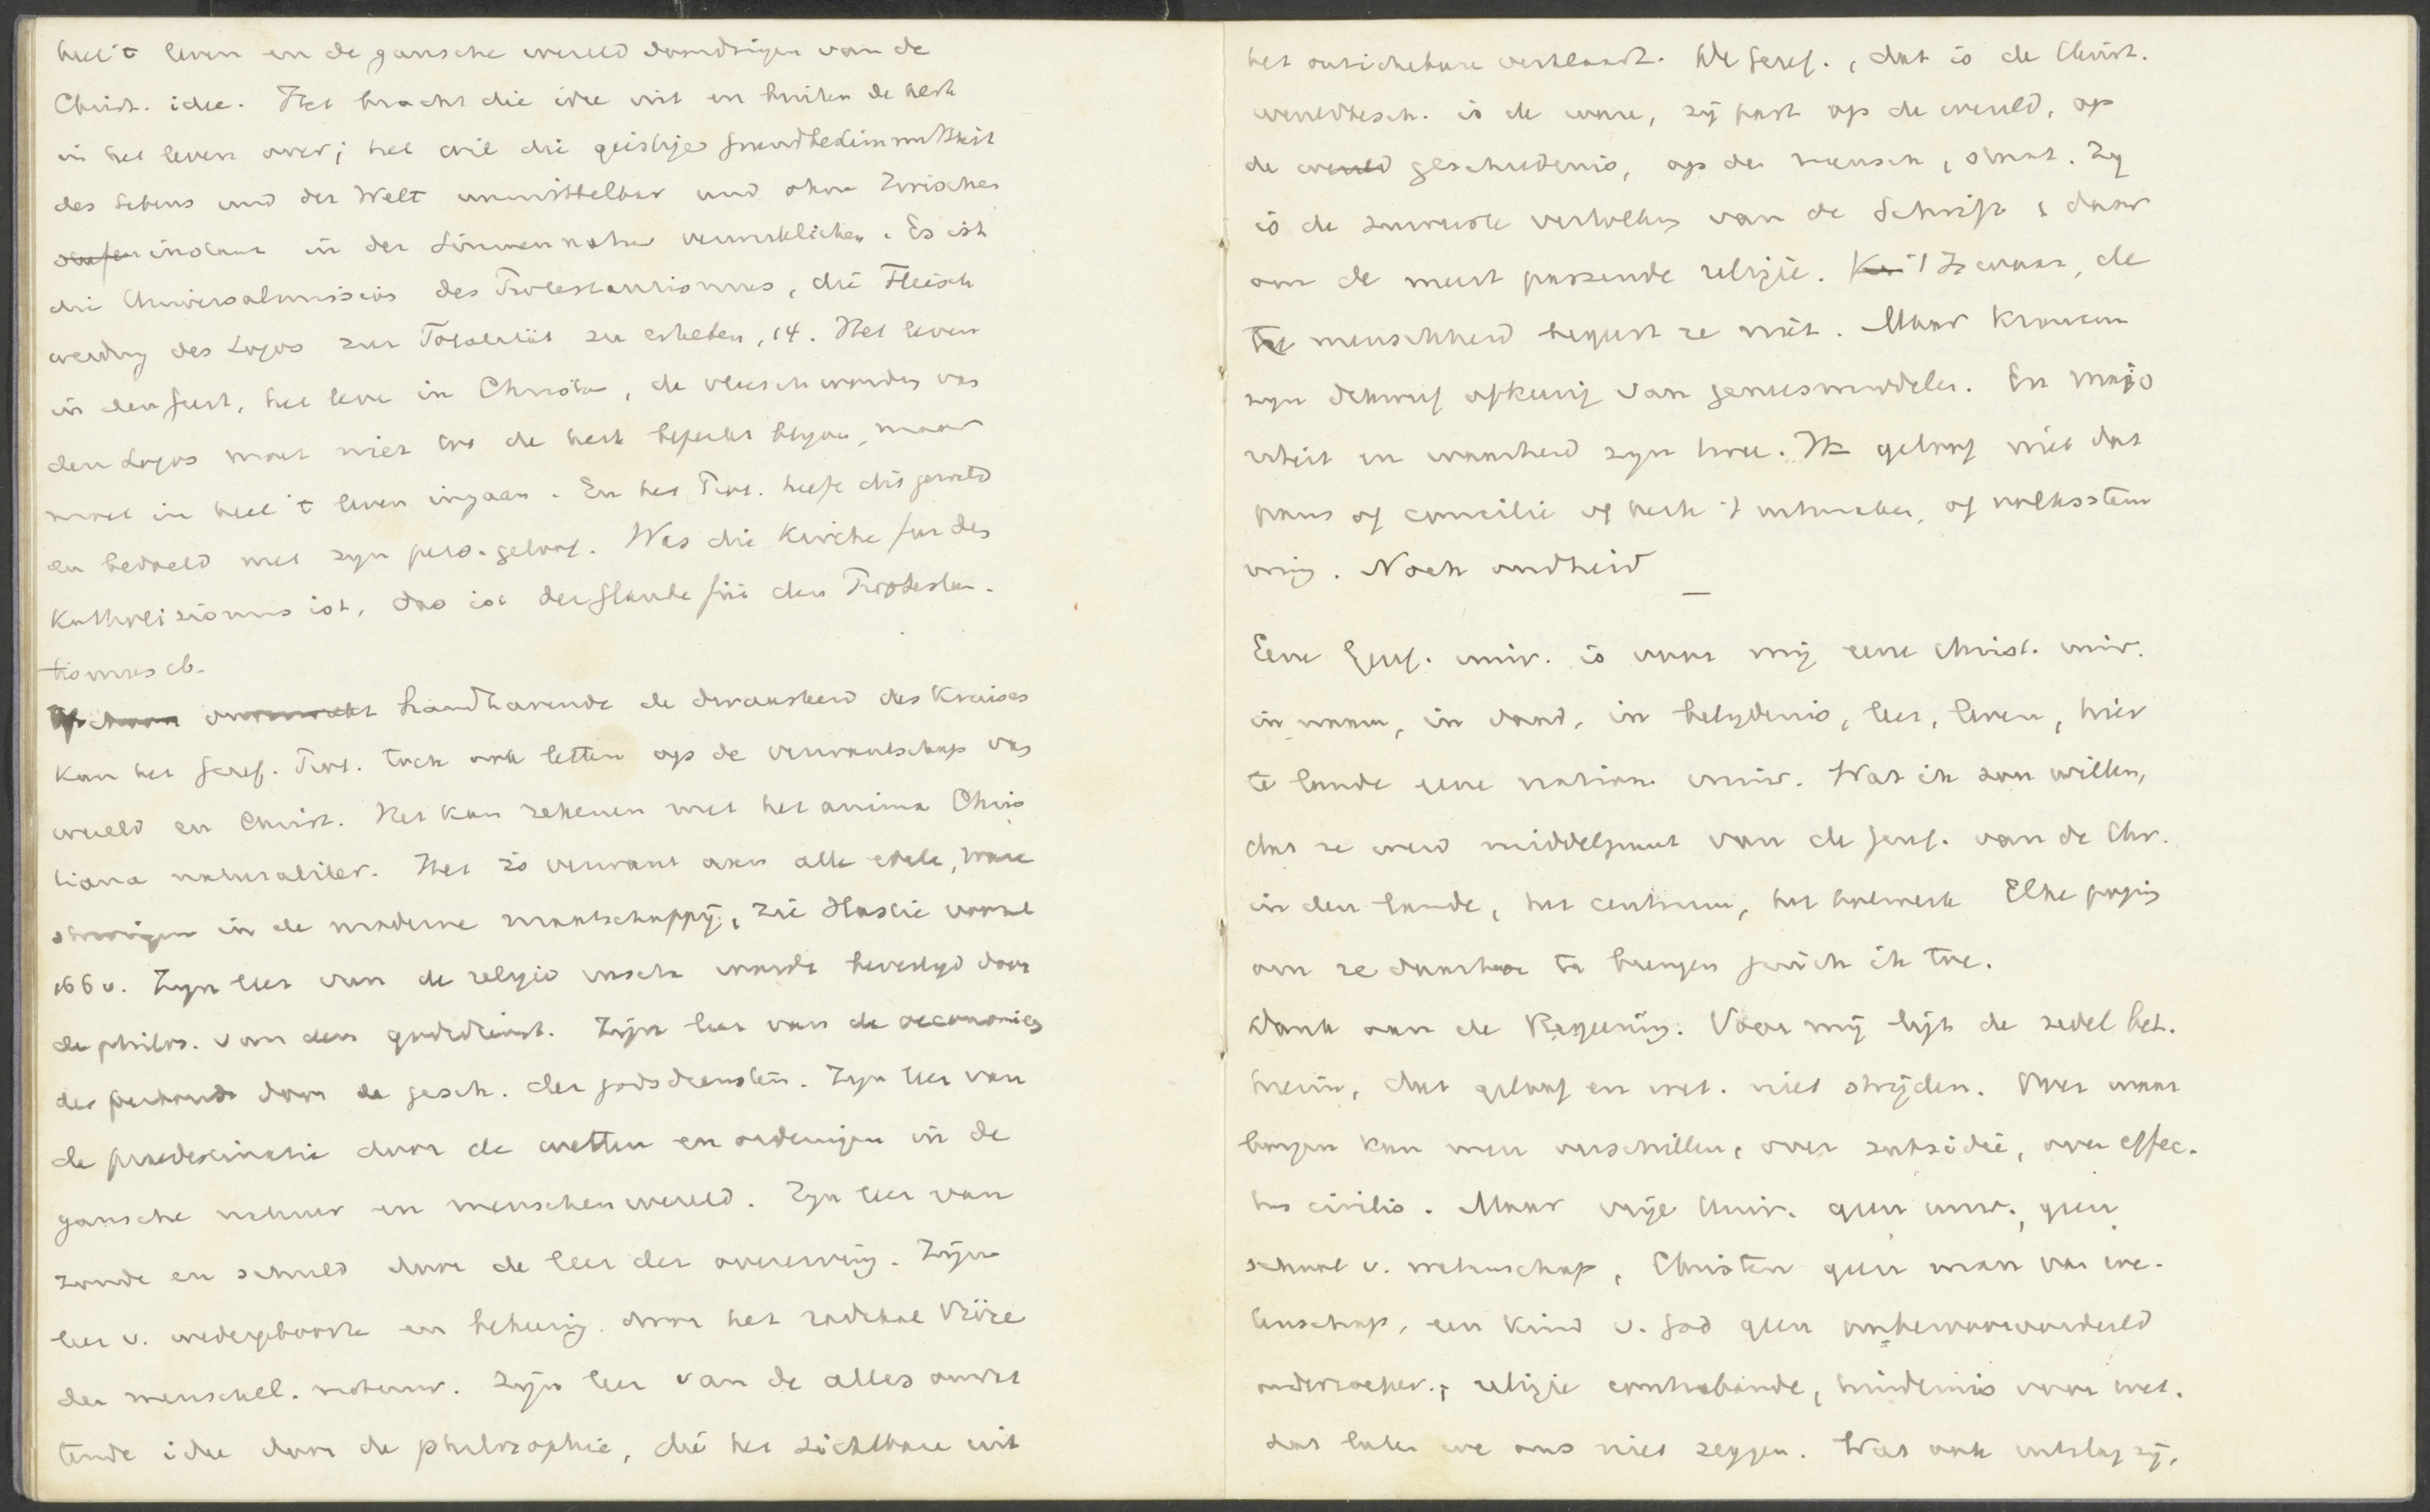 heel 't leven en de gansche wereld doordringen van de
Christ. idee. Het bracht die idee uit en buiten de kerk
in het leven over; het wil die geistige Grundbestimmtheit
des Lebens und der Welt unmittelbar und ohne Zwischen
instanz in der Sinnennatur verwirklichen. Es ist
die Universalmission des Protestantismus, die Fleisch
werdung des Logos zur Totalität zu erheben, 14. Het leven
in den geest, het leven in Christus, de vleeschwording van
den Logos moet niet tot de kerk beperkt blijven, maar
moet in heel 't leven ingaan. En het Prot. heeft dit gewild
en bedoeld met zijn pers. geloof. Was die Kirche für den
Katholizismus ist, das ist der Glaube für den Protestan-
tismus ib.
handhavende de dwaasheid des Kruises
kan het Geref. Prot. toch ook letten op de verwantschap van
wereld en Christ. Het kan rekenen met het anima Chris
tiana naturaliter. Het is verwant aan alle edele, ware
in de moderne maatschappij, zie Hastie vooral
166 v. Zijn leer van de religio insita wordt bevestigd door
de philos. van den godsdienst. Zijn leer van de oeconomie
des door de gesch. der godsdiensten. Zijn leer van
de praedestinatie door de wetten en ordeningen in de
gansche natuur en menschenwereld. Zijn leer van
zonde en schuld door de leer der overerving. Zijn
leer v. wedergeboorte en bekeering door het radikale Böse
der menschel. natuur. Zijn leer van de alles omvat
tende idee door de philosophie, die het zichtbare uit
het onzichtbare verklaart. De Geref., dat is de Christ.
wereldbesch. is de ware, zij past op de wereld, op
de wereld geschiedenis, op den mensch, staat. Zij
is de zuiverste vertolking van de Schrift, daar
om de meest passende religie. 't Is waar, de
menschheid begeert ze niet. Maar kranken
zijn dikwijls afkeerig van geneesmiddelen. En majo
riteit en waarheid zijn twee. Ik geloof niet dat
paus of concilie of kerk 't uitmaken, of volksstem
ming. Noch oudheid
—
Eene Geref. univ. is voor mij eene christ. univ.
in naam, in daad, in belijdenis, leer, leven, hier
te lande eene nation. univ. Wat ik zou willen,
dat ze werd middelpunt van de Geref. van de Chr.
in den lande, het centrum, het bolwerk. Elke poging
om ze daartoe te brengen juich ik toe.
Dank aan de Regeering. Voor mij ligt de zedel. bet.
hierin, dat geloof en wet. niet strijden. Over waar
borgen kan men verschillen, over subsidie, over effec-
tus civilis. Maar vrije Univ. geen univ., geen
school v. wetenschap, Christen geen man van we-
tenschap, een kind v. God geen onbevooroordeeld
onderzoeker; religie contrabande, hindernis voor wet.
dat laten we ons niet zeggen. Wat ook uitslag zij,